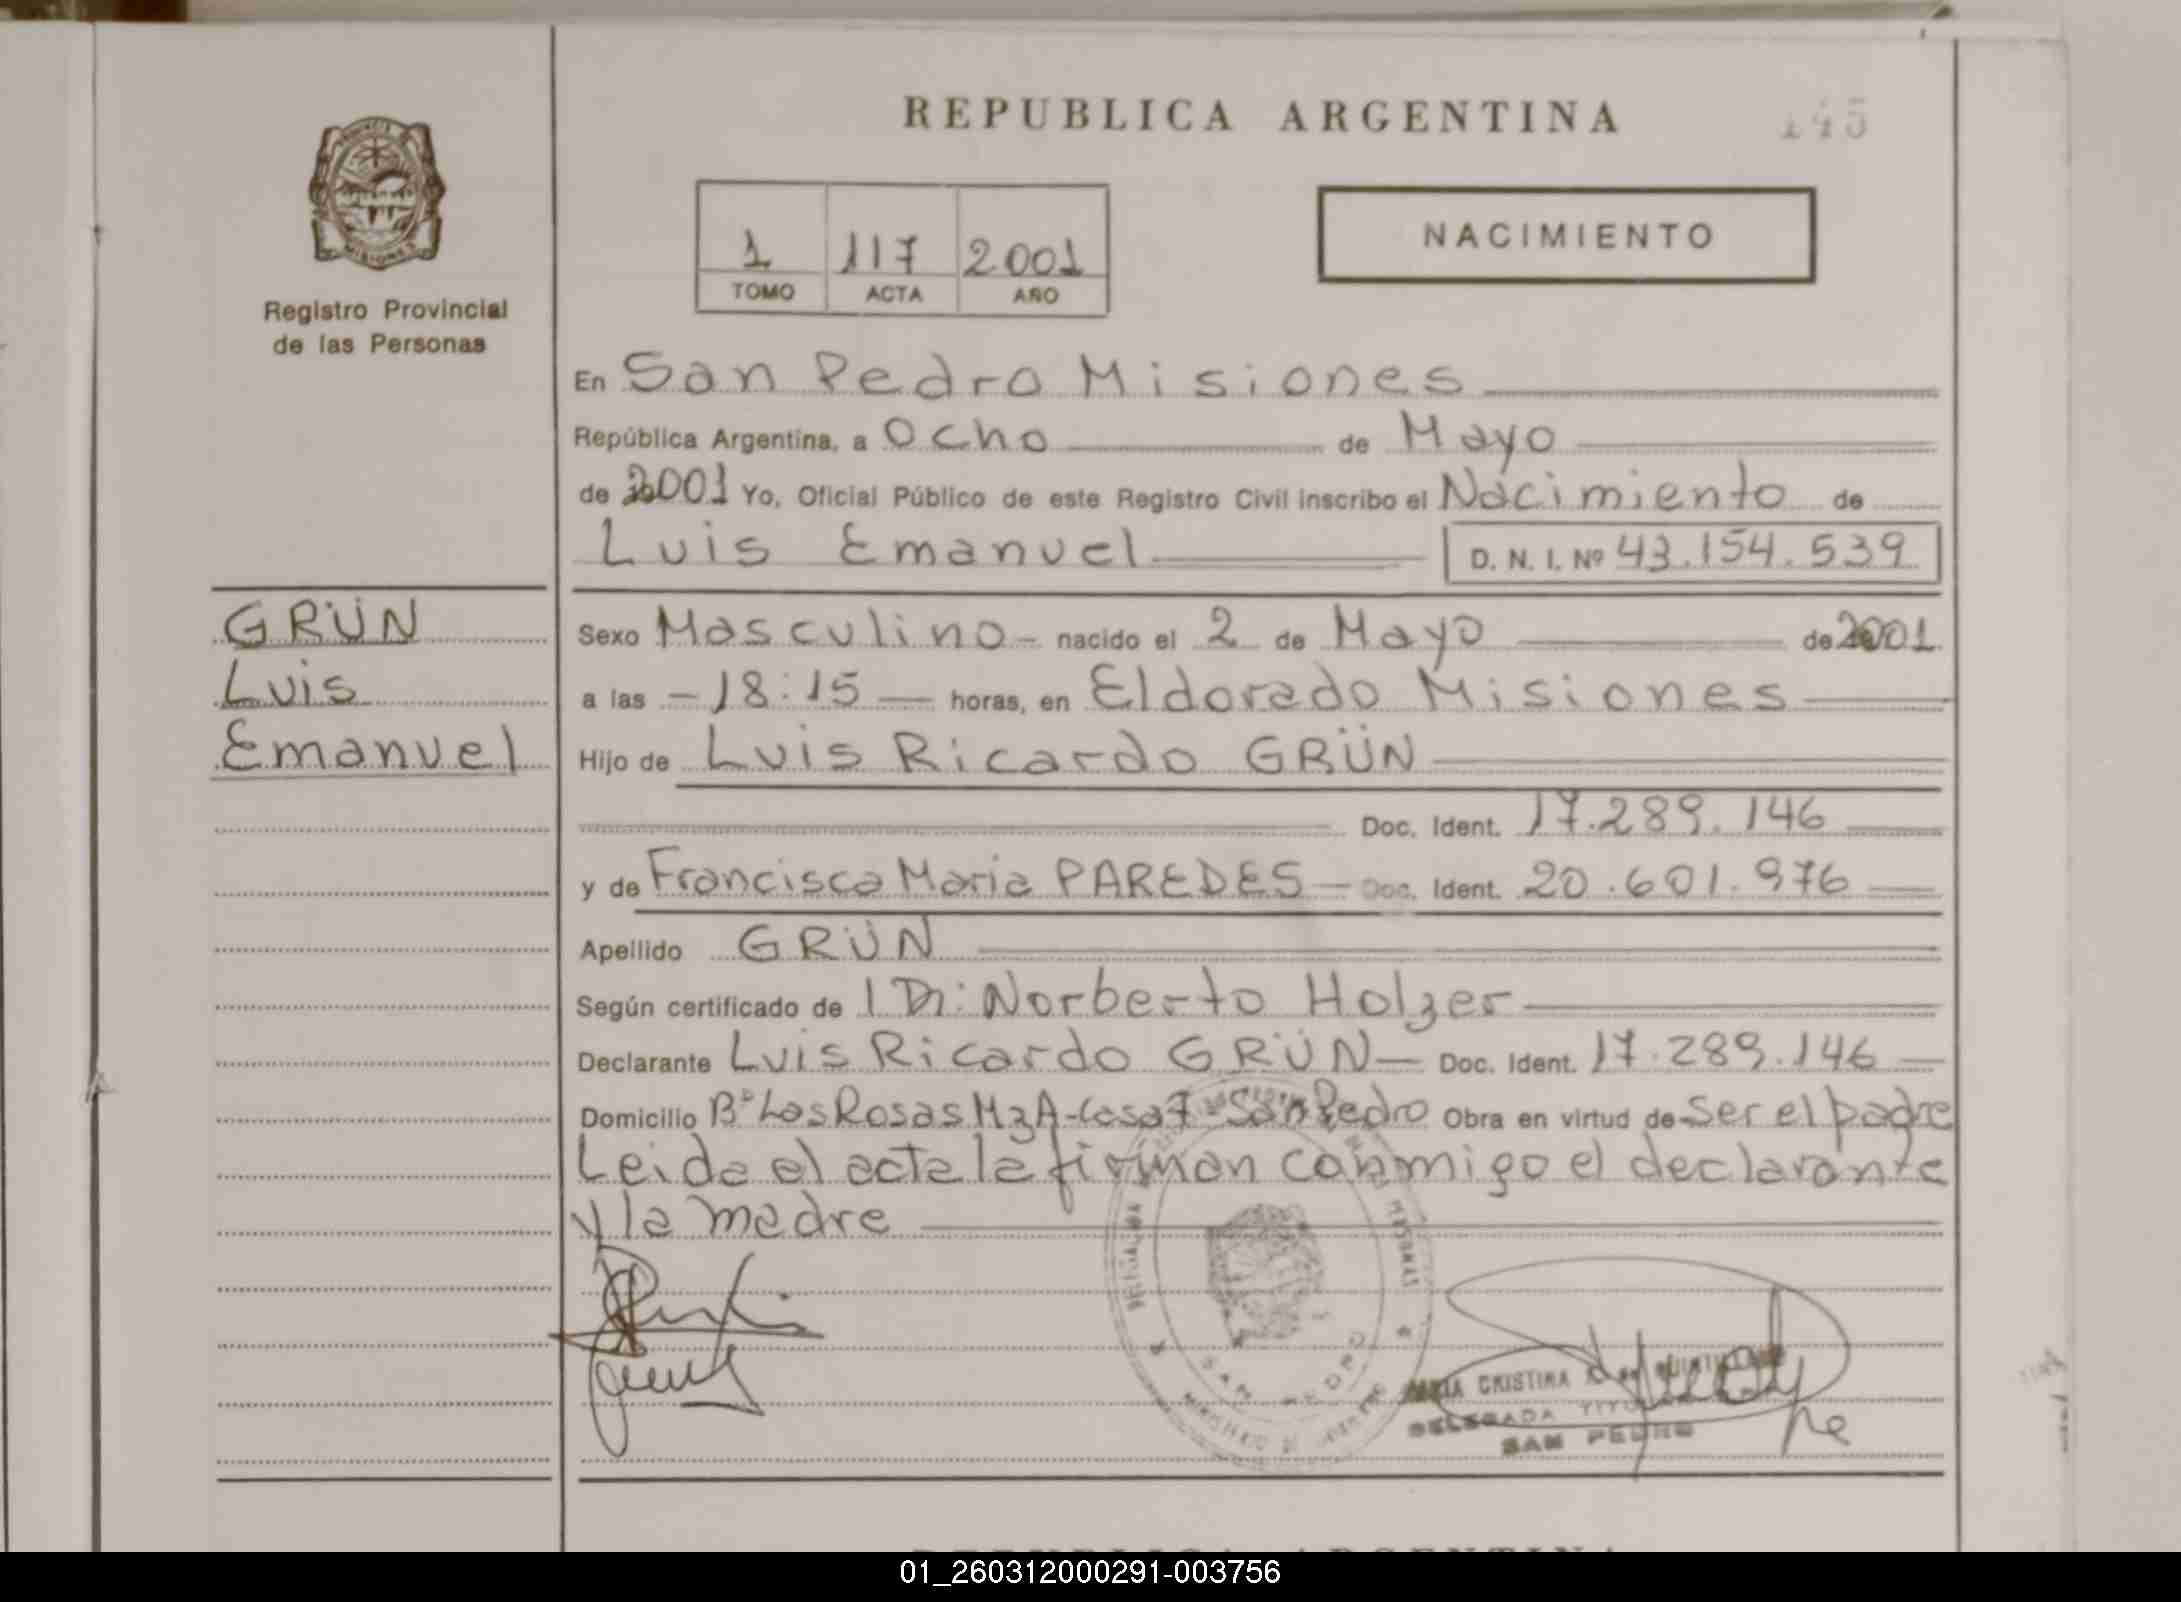 REPUBLICA ARGENTINA
145
Registro Provincial
de las Personas
1 117 2001
TOMO ACTA AÑO
NACIMIENTO
En San Pedro Misiones
República Argentina, a Ocho de Mayo
de 2001 Yo, Oficial Público de este Registro Civil inscribo el Nacimiento de
Luis Emanuel D. N. I. Nº 43.154.539
GRÜN
Luis
Emanuel
Sexo Masculino nacido el 2 de Mayo de 2001
a las 18:15 horas, en Eldorado Misiones
Hijo de Luis Ricardo GRÜN
Doc. Ident. 17.289.146
y de Francisca Maria PAREDES Doc. Ident. 20.601.976
Apellido GRÜN
Según certificado de Dr: Norberto Holzer
Declarante Luis Ricardo GRÜN Doc. Ident. 17.289.146
Domicilio Bº Las Rosas MzA-Casa 7 San Pedro Obra en virtud de Ser el padre
Leida el acta la firman conmigo el declarante
y la madre
SAN PEDRO
CRISTINA
DELEGADA
SAN PEDRO
REPUBLICA ARGENTINA
01_260312000291-003756